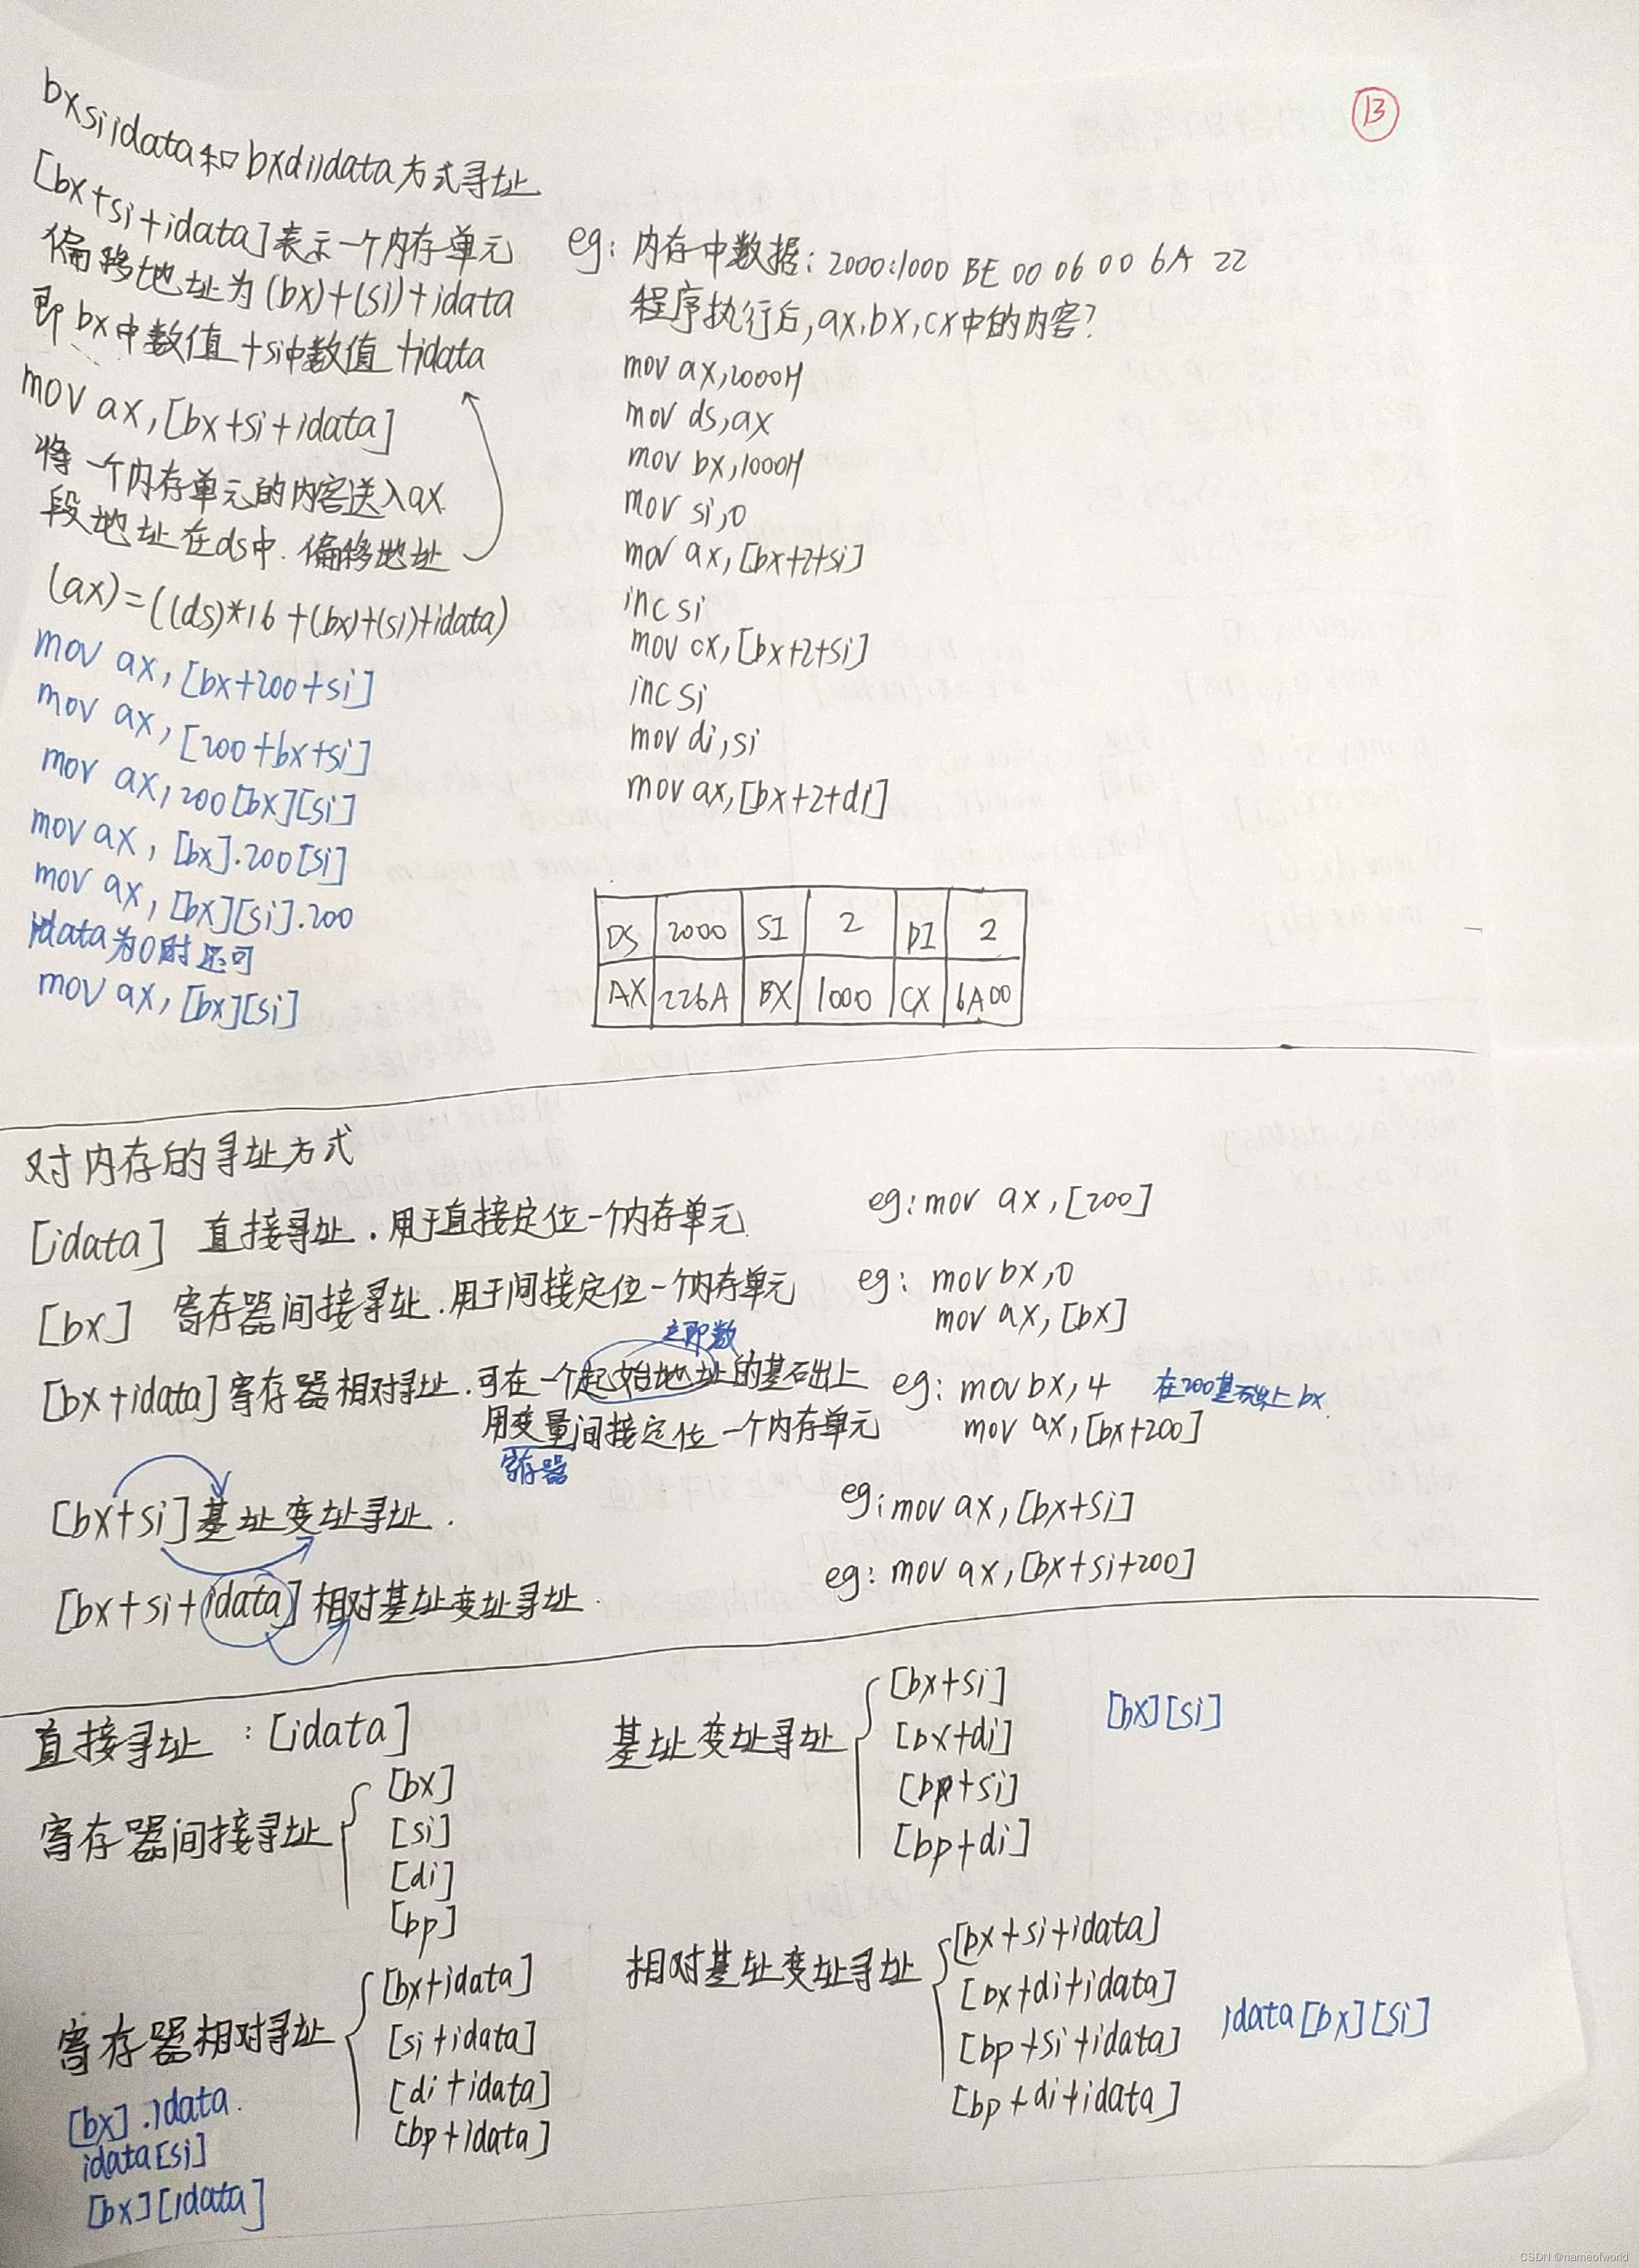 13
bxsiidata和bxdiidata方式寻址
[bx+si+idata]表示一个内存单元
偏移地址为(bx)+(si)+idata
即bx中数值+si中数值+idata
mov ax,[bx+si+idata]
将一个内存单元的内容送入ax
段地址在ds中.偏移地址
(ax)=((ds)*16+(bx)+(si)+idata)
mov ax,[bx+200+si]
mov ax,[200+bx+si]
mov ax,200[bx][si]
mov ax,[bx].200[si]
mov ax,[bx][si].200
idata为0时还可
mov ax,[bx][si]
eg: 内存中数据: 2000:1000 BE 00 06 00 6A 22
程序执行后,ax,bx,cx中的内容?
mov ax,2000H
mov ds,ax
mov bx,1000H
mov si,0
mov ax,[bx+2+si]
inc si
mov cx,[bx+2+si]
inc si
mov di,si
mov ax,[bx+2+di]
DS 2000 SI 2 DI 2
AX 226A BX 1000 CX 6A00
对内存的寻址方式
[idata] 直接寻址.用于直接定位一个内存单元 eg:mov ax,[200]
[bx] 寄存器间接寻址.用于间接定位一个内存单元 eg: mov bx,0
mov ax,[bx]
立即数
[bx+idata]寄存器相对寻址.可在一个起始地址的基础上 eg: mov bx,4 在200基础上bx
用变量间接定位一个内存单元 mov ax,[bx+200]
寄存器
[bx+si]基址变址寻址. eg:mov ax,[bx+si]
[bx+si+idata]相对基址变址寻址. eg: mov ax,[bx+si+200]
直接寻址:[idata]
寄存器间接寻址
[bx]
[si]
[di]
[bp]
寄存器相对寻址
[bx+idata]
[si+idata]
[di+idata]
[bp+idata]
[bx].idata.
idata[si]
[bx][idata]
基址变址寻址
[bx+si]
[bx+di]
[bp+si]
[bp+di]
[bx][si]
相对基址变址寻址
[bx+si+idata]
[bx+di+idata]
[bp+si+idata]
[bp+di+idata]
idata[bx][si]
CSDN @nameofworld